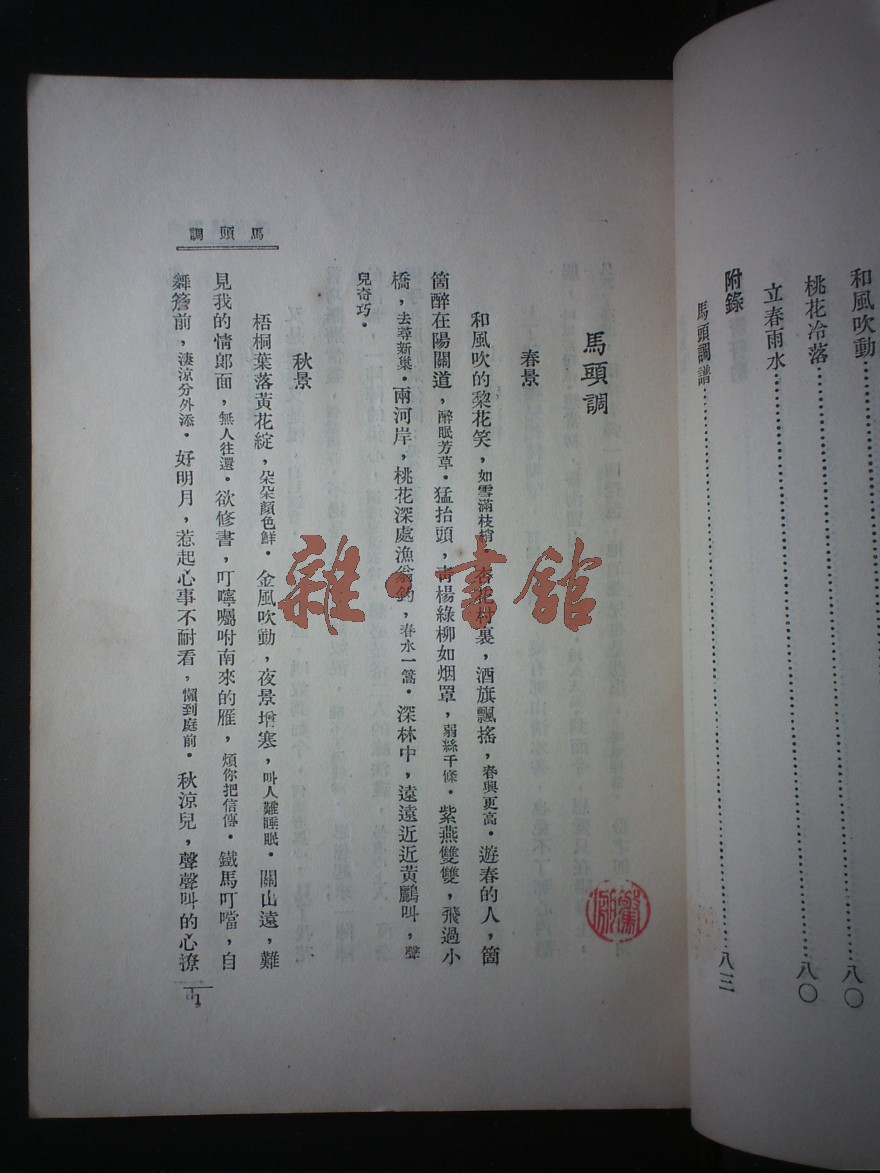 和風吹動…………八〇
桃花冷落…………八〇
立春雨水…………
附錄
馬頭調譜…………八三
馬頭調
春景
和風吹的棃花笑，如雪滿枝梢。杏花村裏，酒旗飄搖，春興更高。遊春的人，箇
箇醉在陽關道，醉眠芳草。猛抬頭，青楊綠柳如烟罩，弱絲千條。紫燕雙雙，飛過小
橋，去尋新巢。兩河岸，桃花深處漁翁釣，春水一篙。深林中，遠遠近近黃鸝叫，聲
兒奇巧。
秋景
梧桐葉落黃花綻，朵朵顏色鮮。金風吹動，夜景增寒，叫人難睡眠。關山遠，難
見我的情郎面，無人往還。欲修書，叮嚀囑咐南來的雁，煩你把信傳。鐵馬叮噹，自
舞簷前，淒涼分外添。好明月，惹起心事不耐看，懶到庭前。秋涼兒，聲聲叫的心撩
馬頭調
一
雜·書館